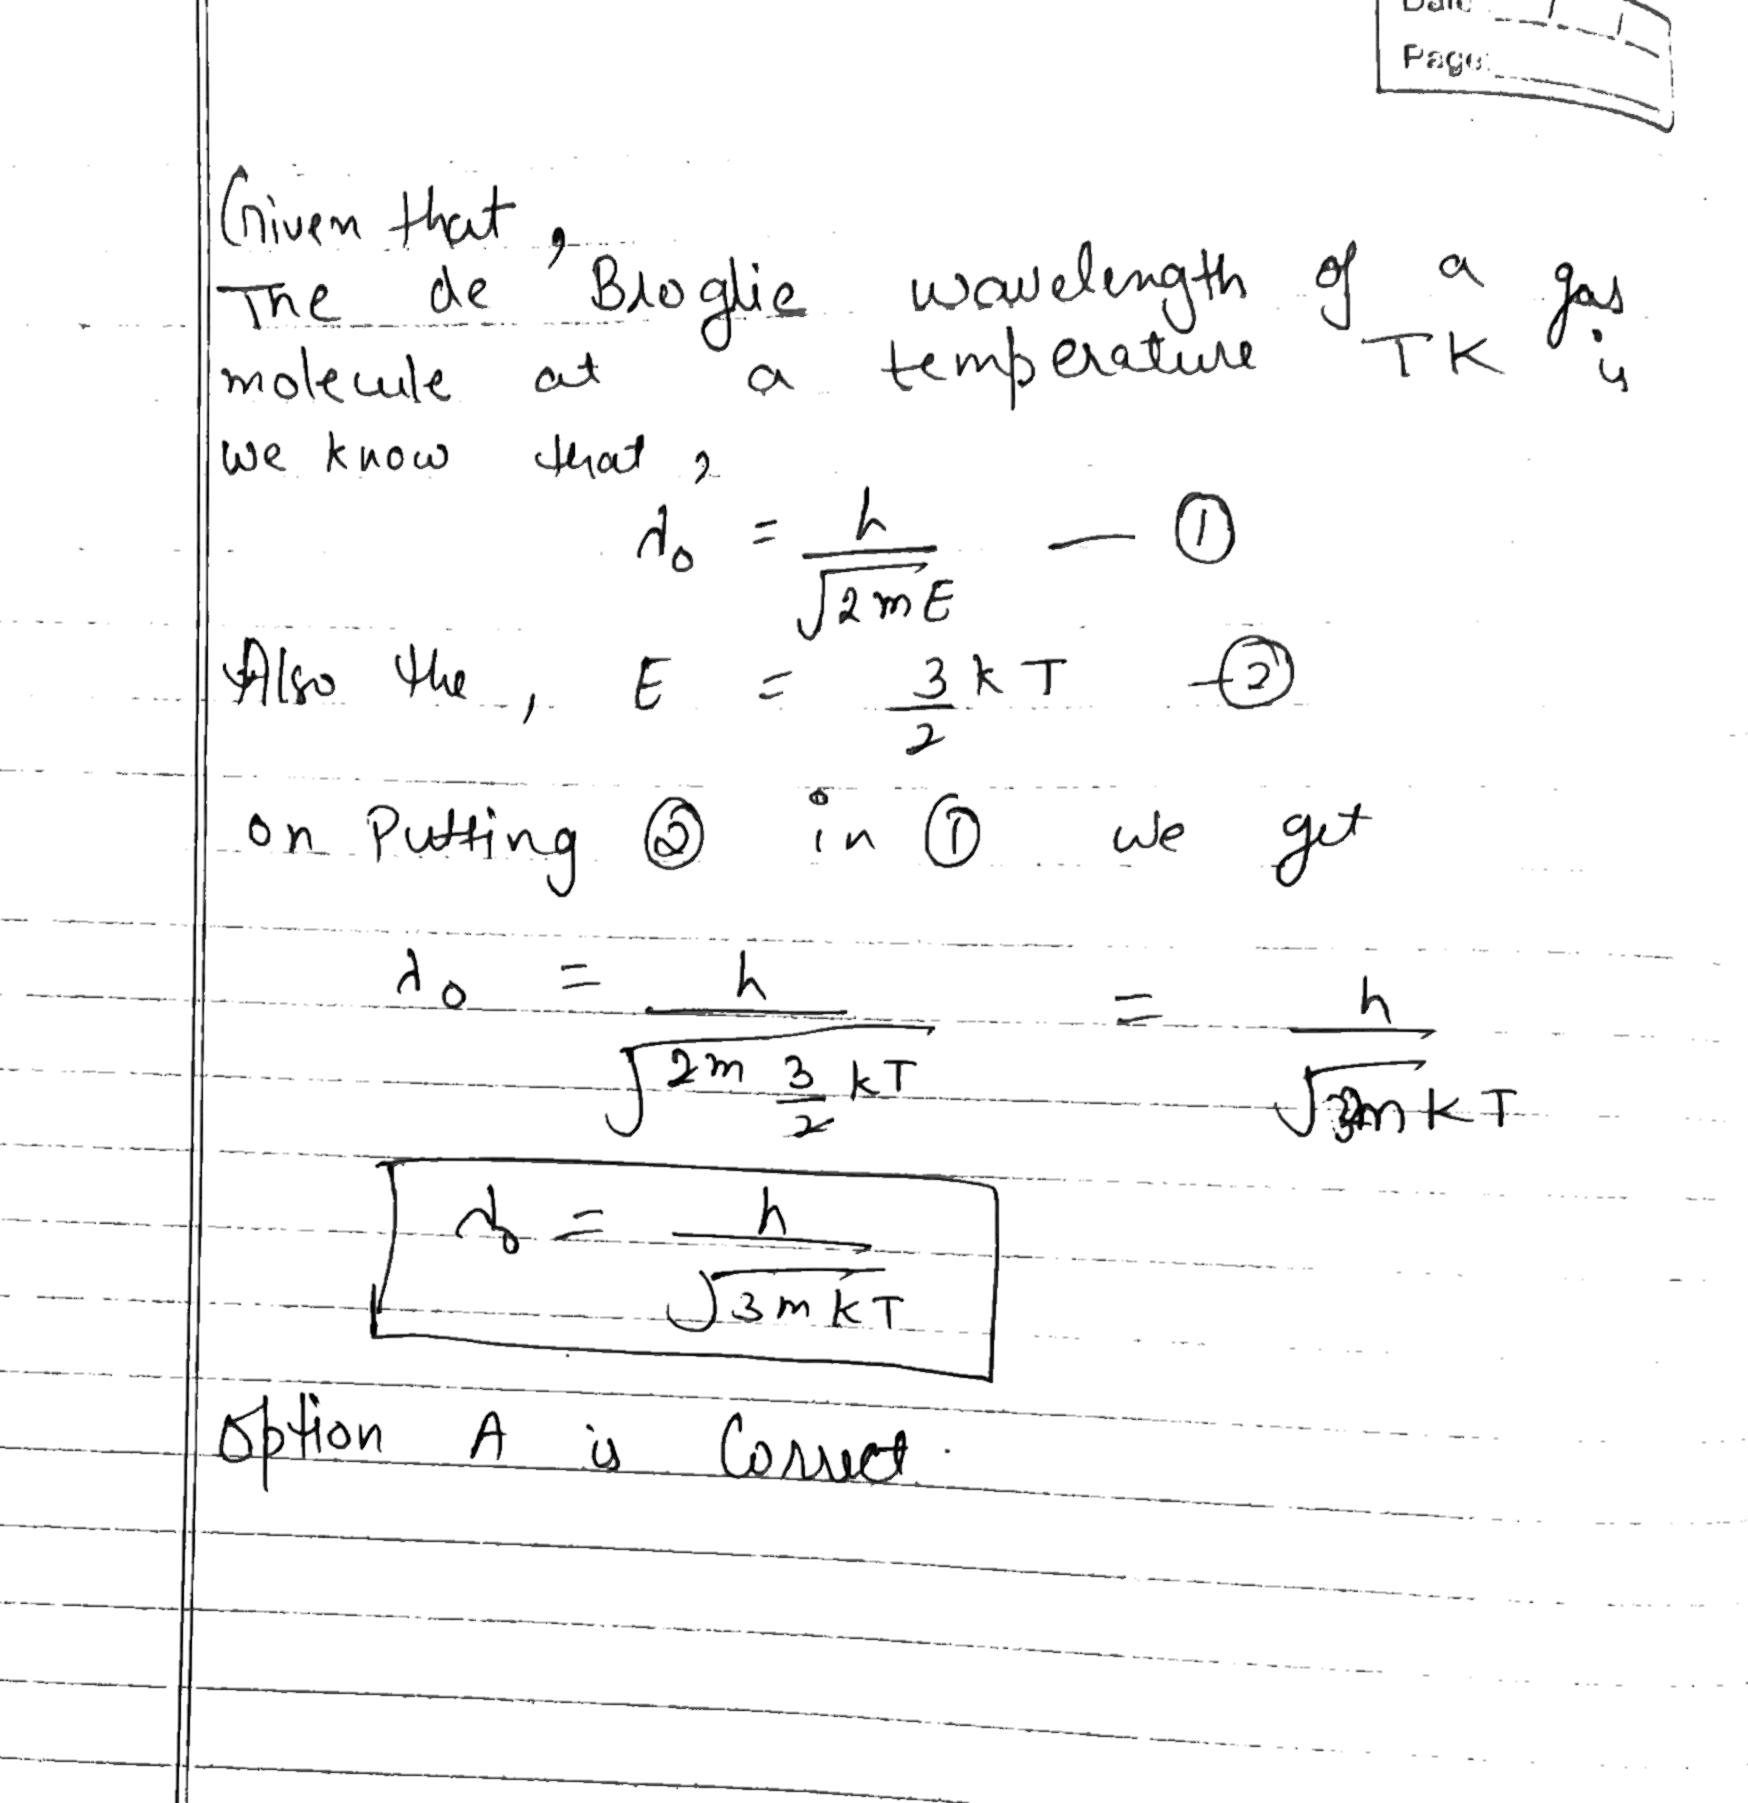 Date
Page:
Given that,
The de Broglie wavelength of a gas
molecule at a temperature TK is
we know that,
λ₀ = h / √2mE — ①
Also the, E = 3/2 kT — ②
on Putting ② in ① we get
λ₀ = h / √2m 3/2 kT = h / √3mKT
λ₀ = h / √3mkT
option A is Correct.